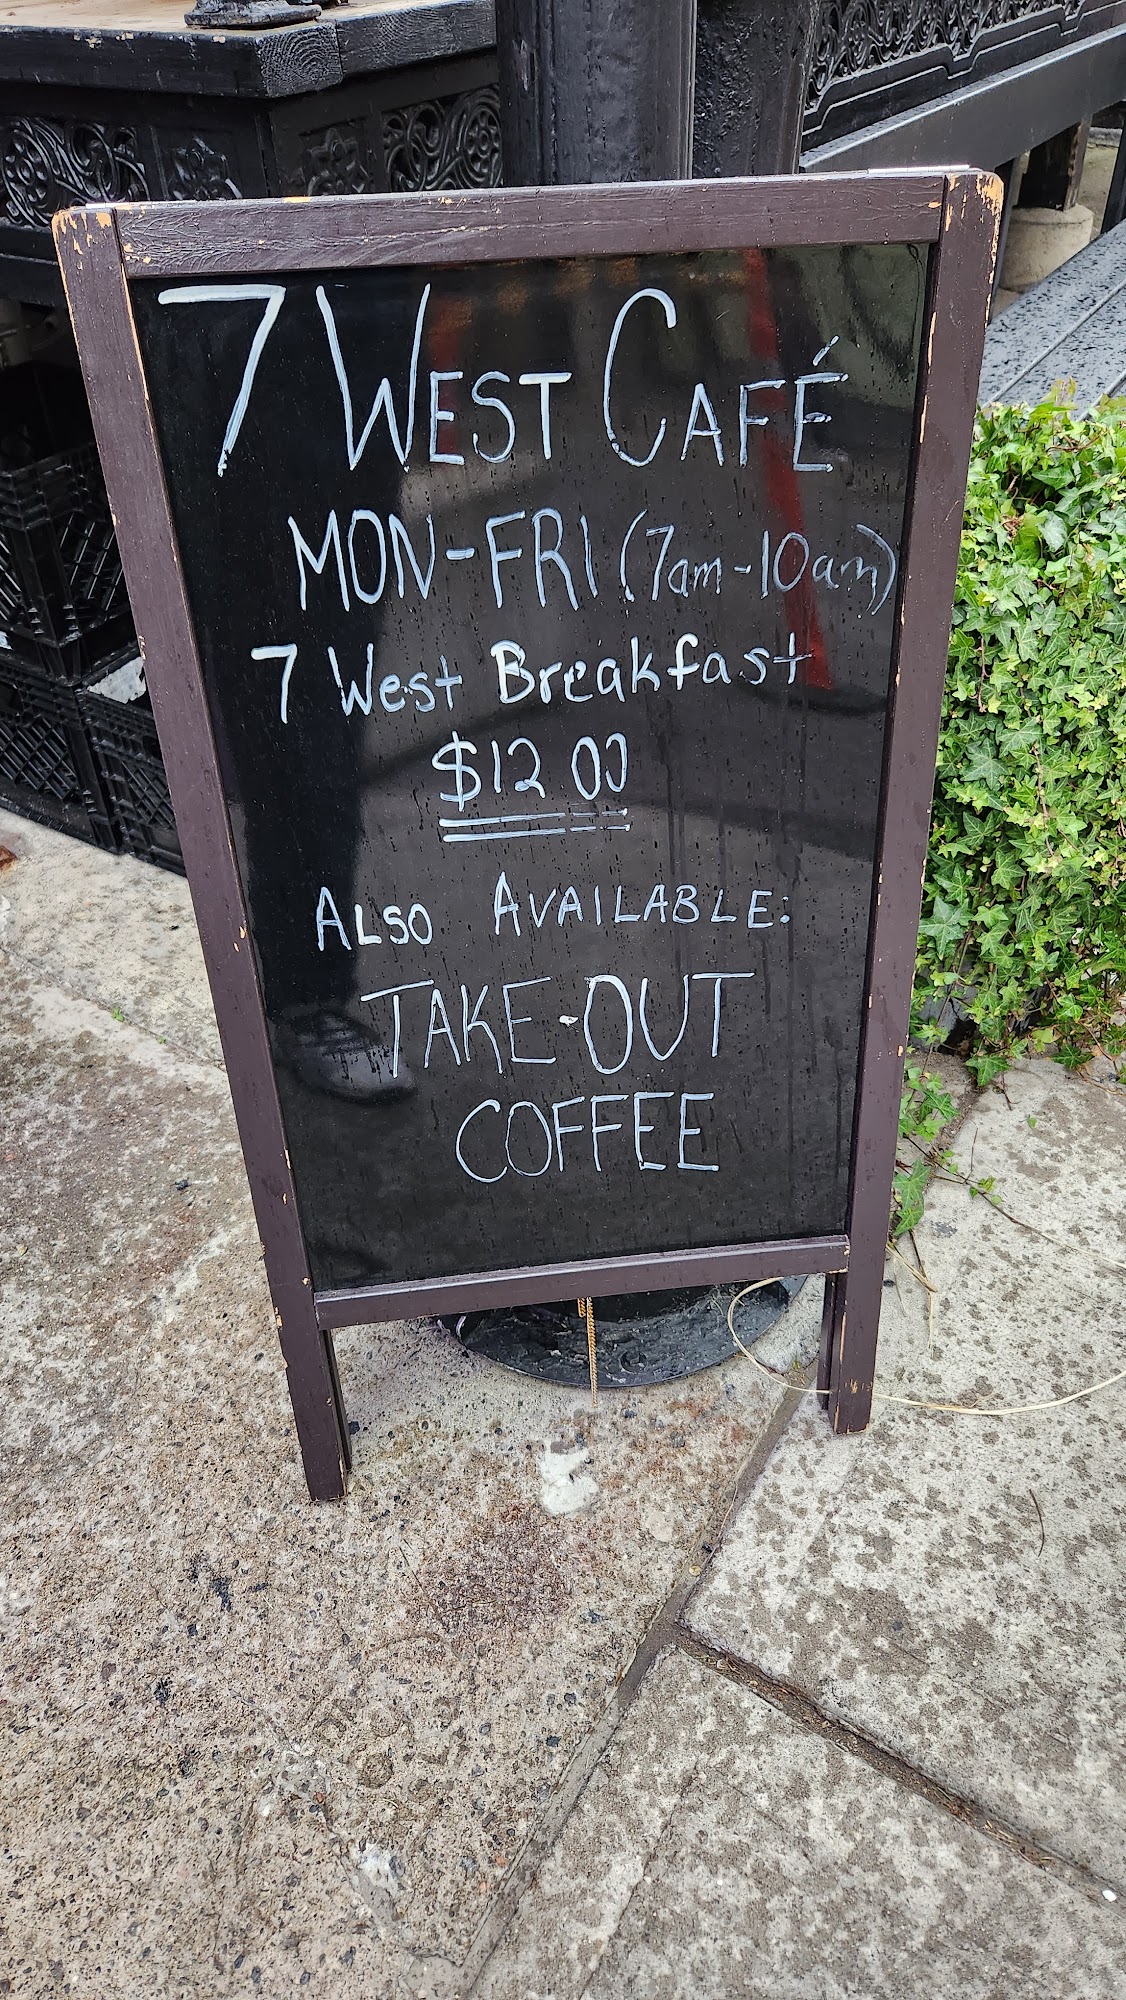 7 WEST CAFÉ
MON-FRI (7am-10am)
7 West Breakfast
$12 00
ALSO AVAILABLE:
TAKE-OUT
COFFEE